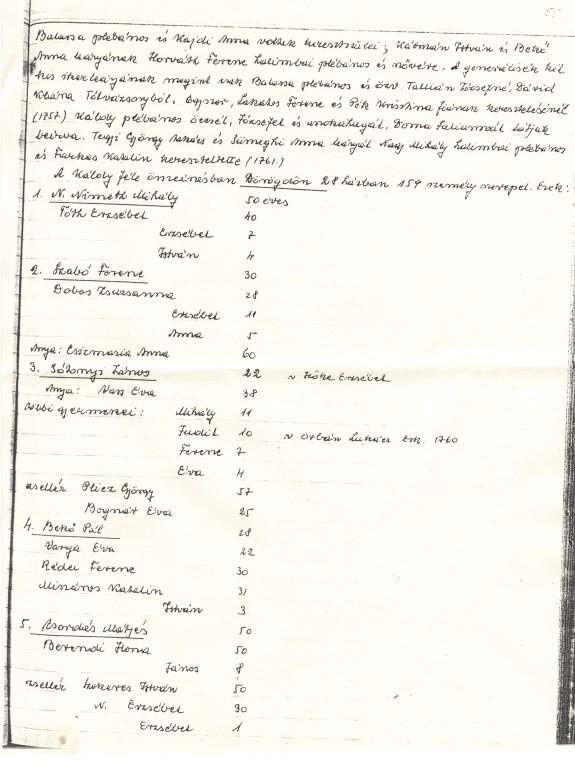 Balassa plébános és Kajdi Anna voltak keresztszülei; Kálmán István és Bekő
Anna leányának Horváth Ferenc zalimbai plébános és nővére. A generálisék két
kis ikerleányának megint csak Balassa plébános és özv. Tallián Józsefné, Dávid
Klára Tótvázsonyból. Lakatos Ferenc és Pék Krisztina fiának keresztelésénél
(1757) Károly plébános öccsét, Józsefet és unokahugát, Doma Juliannát látjuk
beírva. György takács és Sümeghi Anna leányát Nagy Mihály zalimbai plébános
és Farkas Katalin keresztelte (1761.)
A Károly féle összeírásban Dörögdön 28 házban 159 személy szerepel. Ezek:
1. N. Németh Mihály 50 éves
Tóth Erzsébet 40
Erzsébet 7
István 4
2. Szabó Ferenc 30
Dobos Zsuzsanna 28
Erzsébet 11
Anna 5
Anya: Csizmazia Anna 60
3. Sólyomi János 22 ~ Kőke Erzsébet
Anya: Vass Éva 38
többi gyermekei: Mihály 11
Judit 10 ~ Orbán Lukács Erk. 1760
Ferenc 7
Éva 4
zsellér Plicz György 57
Bognár Éva 25
4. Bekő Pál 28
Varga Éva 22
Rédei Ferenc 30
Mészáros Katalin 31
István 3
5. Csordás Mátyás 50
Berendi Ilona 50
János 8
zsellér Szekeres István 50
N. Erzsébet 30
Erzsébet 1